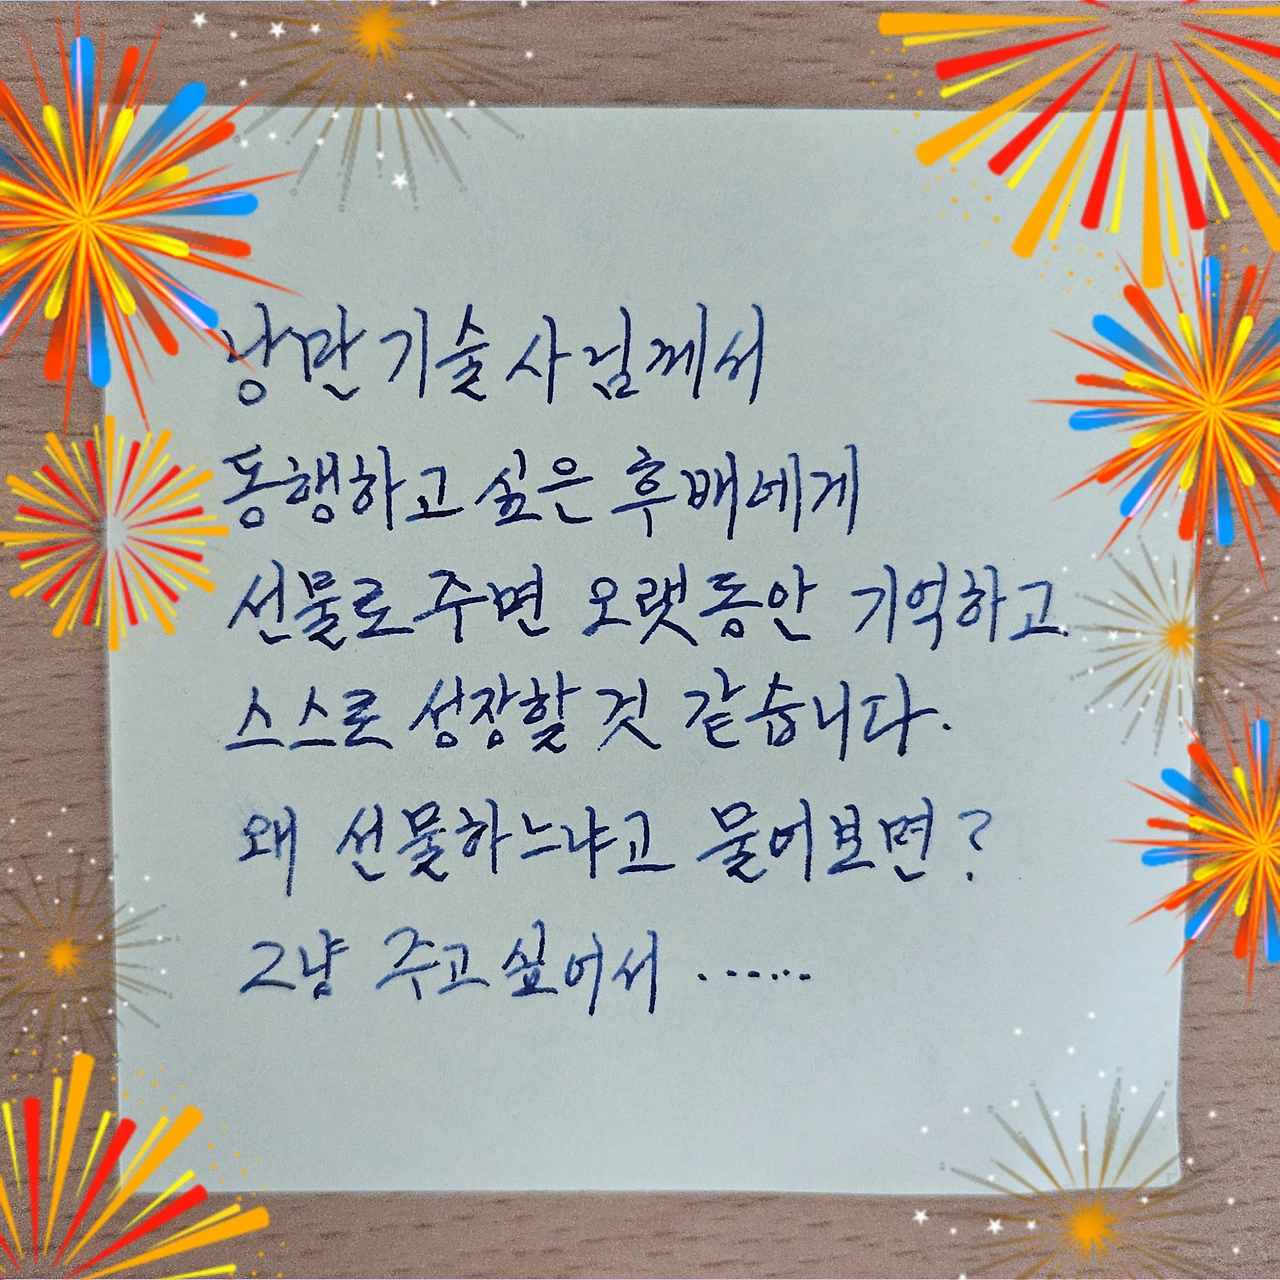 낭만기술사님께서
동행하고 싶은 후배에게
선물로 주면 오랫동안 기억하고
스스로 성장할 것 같습니다.
왜 선물하느냐고 물어보면?
그냥 주고싶어서 ......